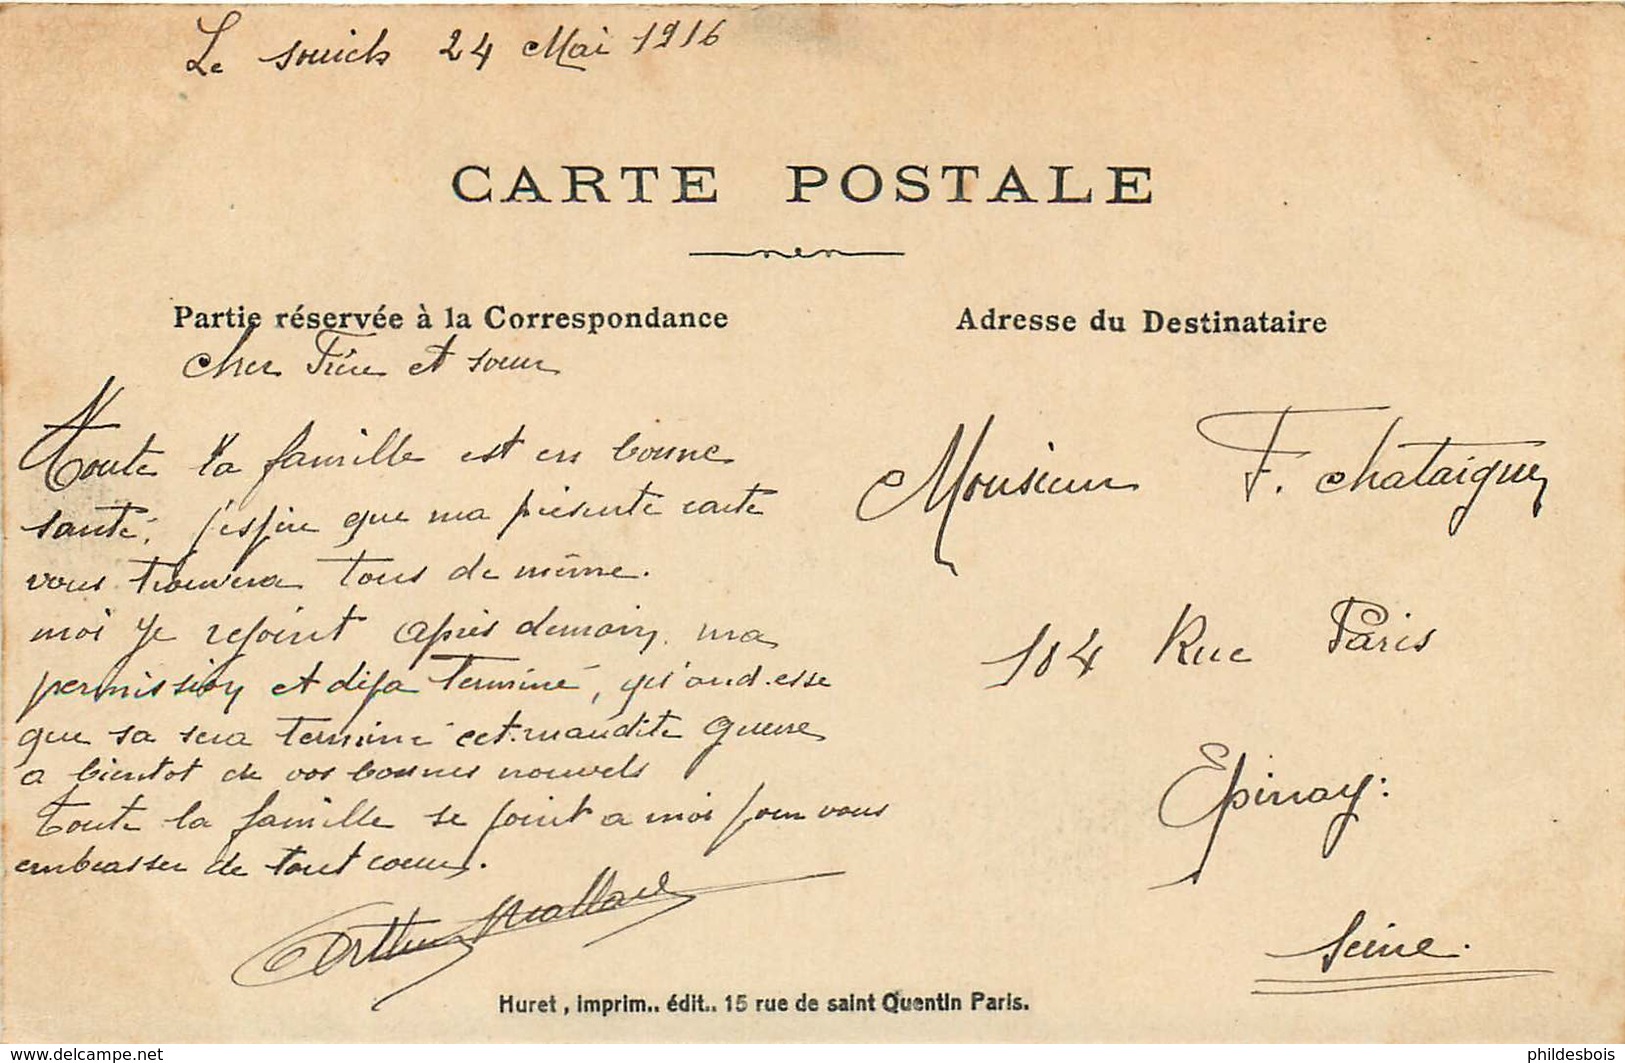 Le Souich 24 Mai 1916
CARTE POSTALE
Partie réservée à la Correspondance
Adresse du Destinataire
Cher Frère et soeur
Toute la famille est en bonne
santé, j'espère que ma présente carte
vous trouvera tous de même.
moi je rejoint après demain, ma
permission et déja terminé, qu'and esse
que sa sera terminé cet maudite guerre
a bientot de vos bonnes nouvels
Toute la famille se joint a moi pour vous
embrasser de tout coeur.
Arthur
Monsieur F. Chataignez
104 Rue Paris
Epinay:
Seine.
Huret, imprim.. édit.. 15 rue de saint Quentin Paris.
https://www.delcampe.net
phildesbois